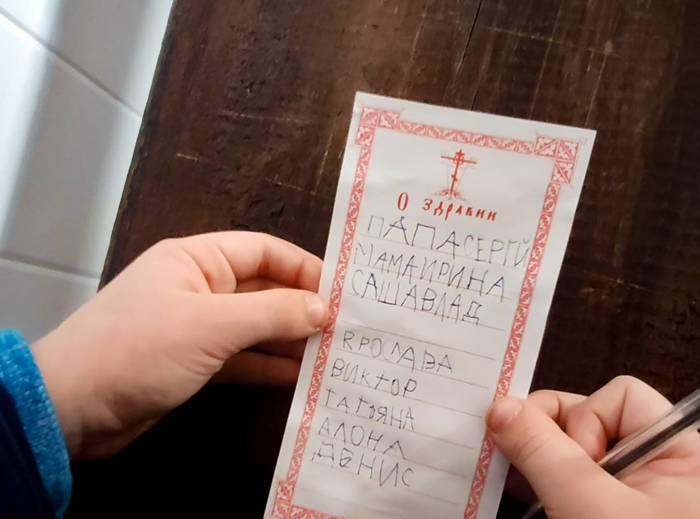 О здравии
ПАПАСЕРГЙ
МАМАИРИНА
САШАВЛАД
ЯРОСЛАВА
ВИКТОР
ТАТЯНА
АЛОНА
ДЕНИС